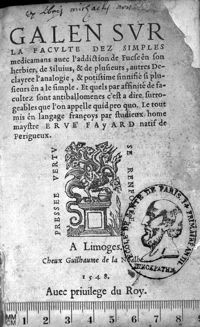 Ex libris
GALEN SVR
LA FACVLTE DEZ SIMPLES
medicamans auec l'addiction de Fucse en son
herbier, de Siluius, & de plusieurs, autres De-
clayree l'analogie, & potissime sinnifie si plu-
sieurs en a le simple. Et quels par affinité de fa-
cultez sont antibalomenes c'est a dire, surro-
geables que l'on appelle quid pro quo. Le tout
mis en langage françoys par studieux home
maystre ERVE FAYARD natif de
Perigueux.
PRESSEE VERTV
SE RENF
A Limoges,
Cheux Guilhaume de la Noalhe
1548.
Auec priuilege du Roy.
MM
CM